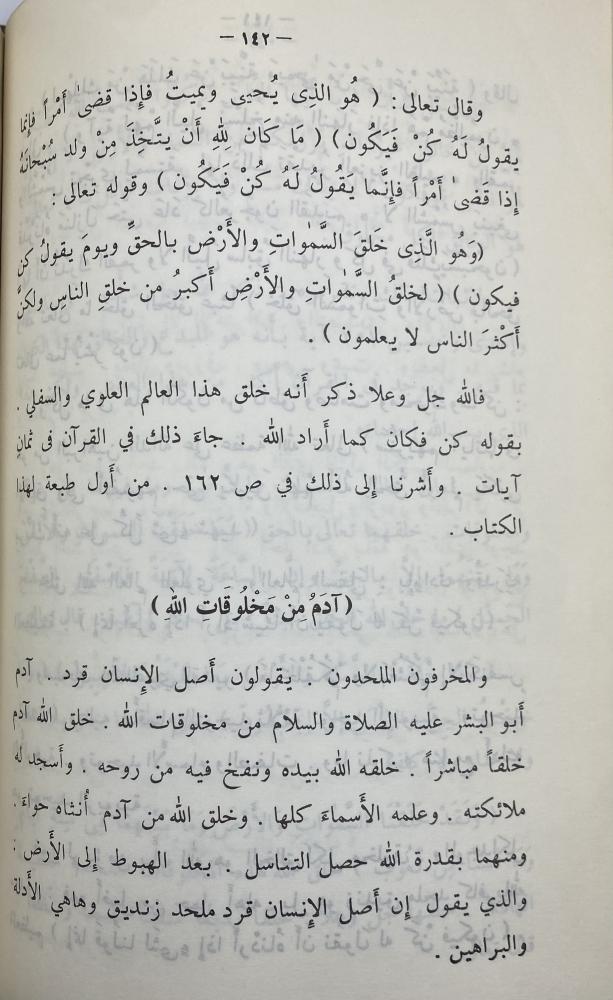 — ١٤٢ —
وقال تعالى : ( هُو الذِى يُحيى ويميتُ فإِذا قضىٰ أَمْراً فإِنما
يقولُ لَهُ كُنْ فَيَكُون ) ( مَا كَان لِلهِ أَنْ يتَّخِذَ مِنْ ولد سُبْحانَهُ
إِذا قَضىٰ أَمْراً فإِنَّما يَقُولُ لَهُ كُنْ فَيَكُون ) وقوله تعالى :
(وَهُو الَّذِى خَلقَ السَّمٰواتِ والأَرْض بالحقِّ ويومَ يقولُ كن
فيكون ) ( لخلقُ السَّمٰواتِ والأَرْضِ أَكبرُ من خلقِ الناسِ ولكنَّ
أَكْثرَ الناس لا يعلمون ) .
فالله جل وعلا ذكر أَنه خلق هذا العالم العلوي والسفلي .
بقوله كن فكان كما أَراد الله . جاءَ ذلك في القرآن فى ثمانِ
آيات . وأَشرنا إِلى ذلك في ص ١٦٢ . من أَول طبعة لهذا
الكتاب .
( آدَمُ مِنْ مَخْلُوقَاتِ اللهِ )
والمخرفون الملحدون . يقولون أَصل الإِنسان قرد . آدم
أَبو البشر عليه الصلاة والسلام من مخلوقات الله . خلق الله آدم
خلقاً مباشراً . خلقه الله بيده ونفخ فيه من روحه . وأَسجد له
ملائكته . وعلمه الأَسماءَ كلها . وخلق الله من آدم أُنثاه حواءَ .
ومنهما بقدرة الله حصل التناسل . بعد الهبوط إِلى الأَرض :
والذي يقول إِن أَصل الإِنسان قرد ملحد زنديق وهاهي الأَدلة
والبراهين .